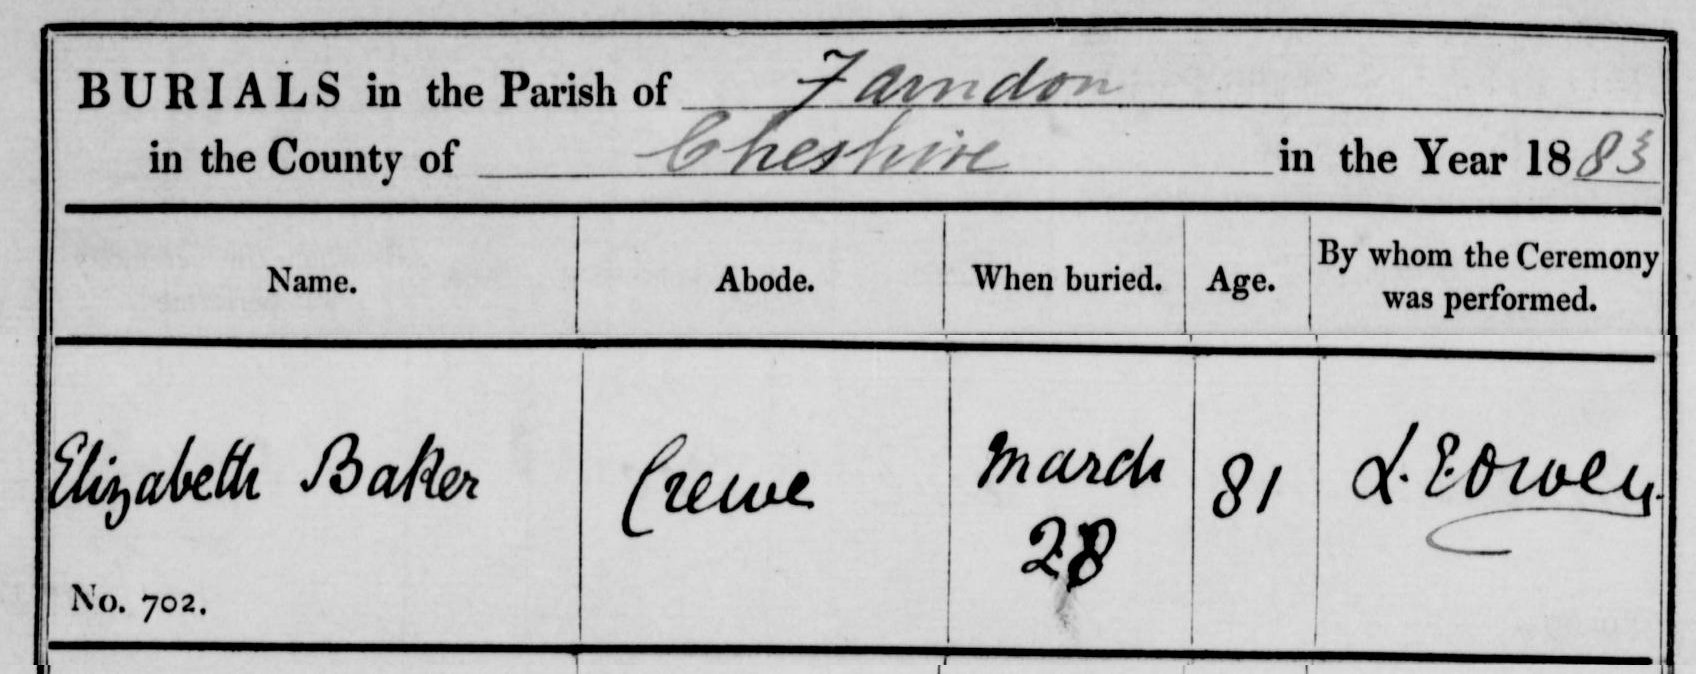 BURIALS in the Parish of Farndon
in the County of Cheshire in the Year 1883
Name. Abode. When buried. Age. By whom the Ceremony was performed.
Elizabeth Baker Crewe March 28 81 L. E. Owen
No. 702.